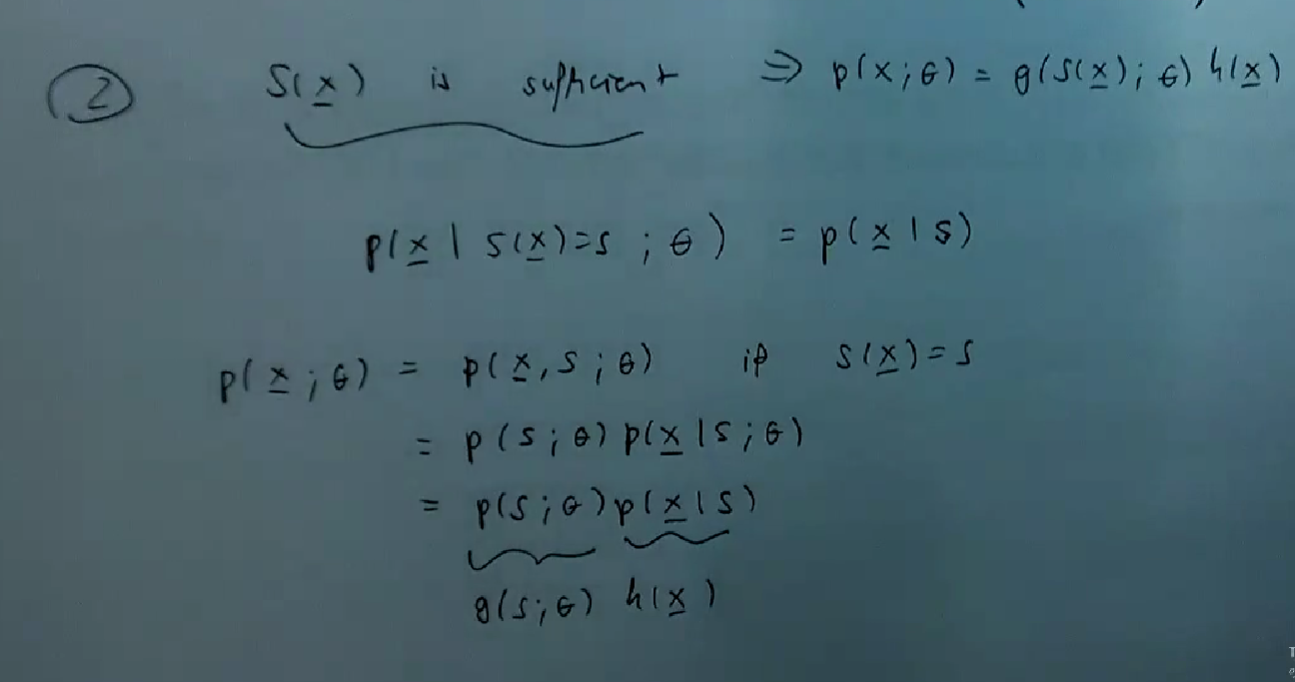 ② S(x̲) is sufficient ⇒ p(x;θ) = g(S(x̲);θ) h(x̲)
p(x̲ | S(x̲)=s ; θ) = p(x̲ | s)
p(x̲;θ) = p(x̲,s;θ) if S(x̲)=s
= p(s;θ) p(x̲|s;θ)
= p(s;θ) p(x̲|s)
g(s;θ) h(x̲)